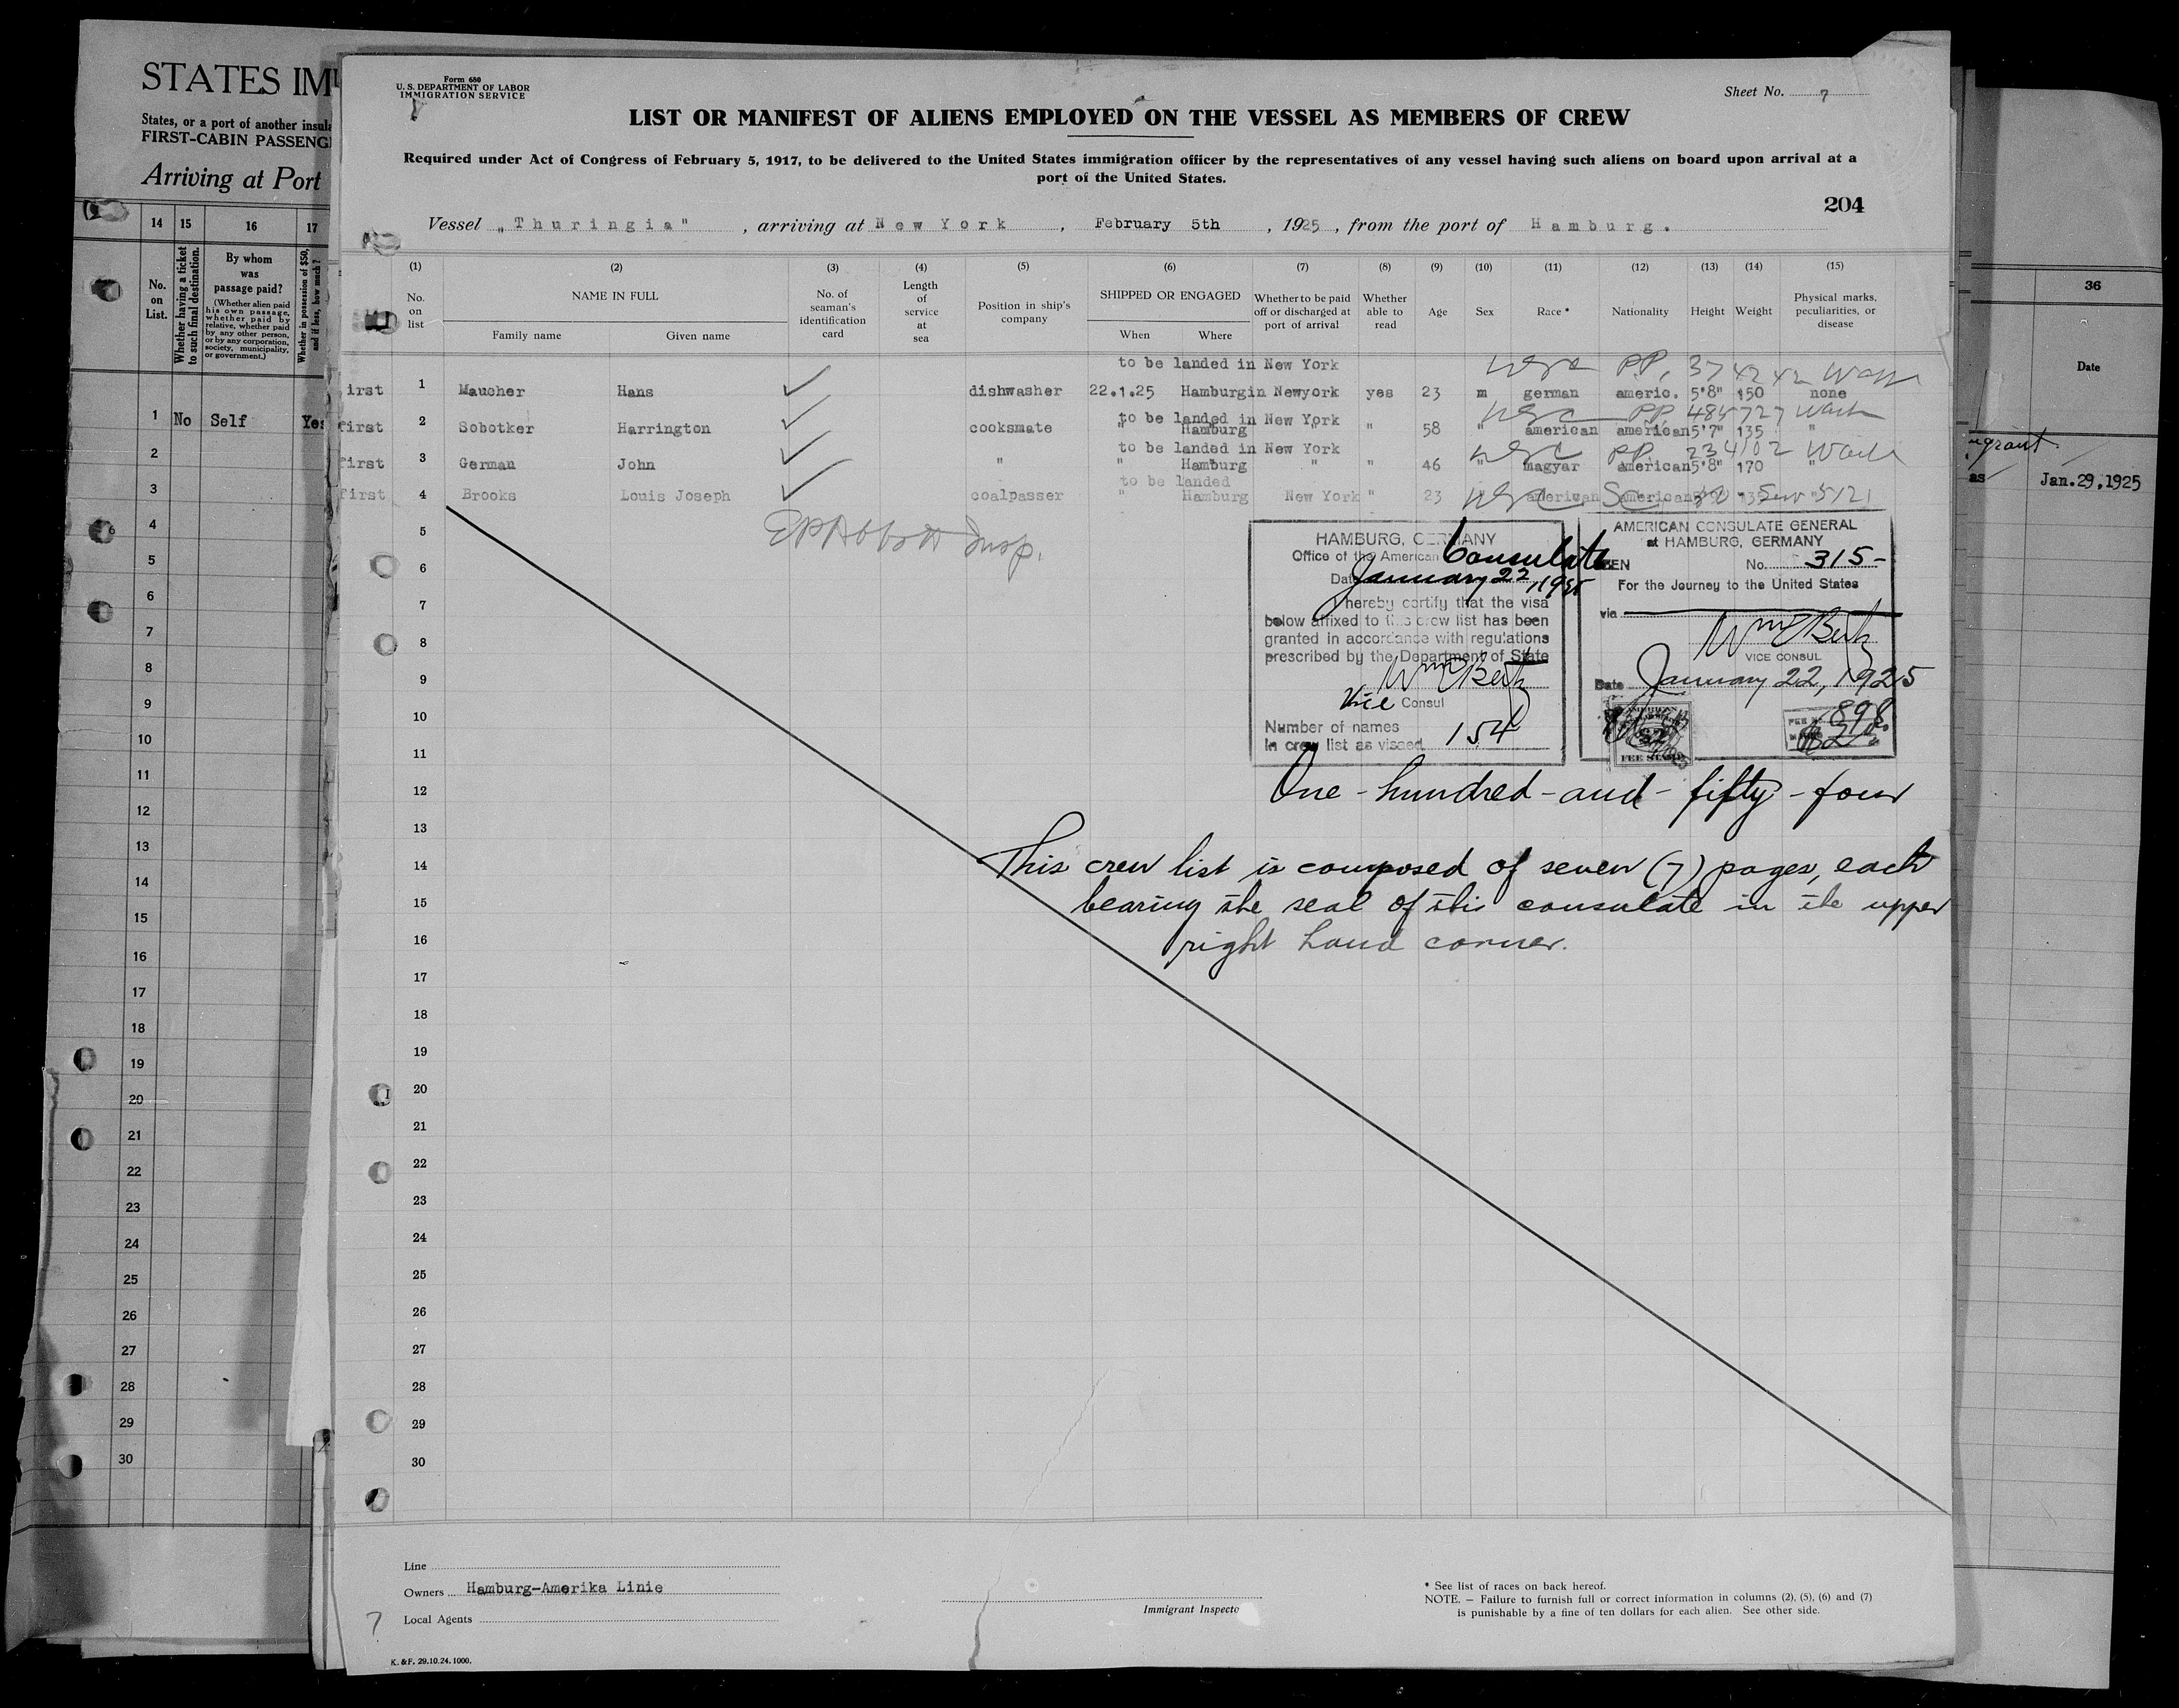 STATES IM
States, or a port of another insula
FIRST-CABIN PASSENG
Arriving at Port
14 15 16 17
No. on List.
Whether having a ticket to such final destination.
By whom was passage paid?
(Whether alien paid his own passage, whether paid by relative, whether paid by any other person, or by any corporation, society, municipality, or government.)
Whether in possession of $50, and if less, how much?
1 No Self Yes
2
3
4
5
6
7
8
9
10
11
12
13
14
15
16
17
18
19
20
21
22
23
24
25
26
27
28
29
30
Form 680
U. S. DEPARTMENT OF LABOR
IMMIGRATION SERVICE
Sheet No. 7
LIST OR MANIFEST OF ALIENS EMPLOYED ON THE VESSEL AS MEMBERS OF CREW
Required under Act of Congress of February 5, 1917, to be delivered to the United States immigration officer by the representatives of any vessel having such aliens on board upon arrival at a
port of the United States.
204
Vessel „Thuringia" , arriving at New York , February 5th , 1925 , from the port of Hamburg.
(1) (2) (3) (4) (5) (6) (7) (8) (9) (10) (11) (12) (13) (14) (15)
No. on list
NAME IN FULL
Family name Given name
No. of seaman's identification card
Length of service at sea
Position in ship's company
SHIPPED OR ENGAGED
When Where
Whether to be paid off or discharged at port of arrival
Whether able to read
Age
Sex
Race *
Nationality
Height
Weight
Physical marks, peculiarities, or disease
to be landed in New York PP. 374242 Wash
irst 1 Maucher Hans ✓ dishwasher 22.1.25 Hamburg in Newyork yes 23 m german americ. 5'8" 150 none
to be landed in New York PP. 485727 Wash
first 2 Sobotker Harrington ✓ cooksmate " Hamburg " " 58 " american american 5'7" 135 "
to be landed in New York PP. 234102 Wash
first 3 German John ✓ " " Hamburg " " 46 " magyar american 5'8" 170 "
to be landed
first 4 Brooks Louis Joseph ✓ coalpasser " Hamburg New York " 23 american american
5
6
7
8
9
10
11
12
13
14
15
16
17
18
19
20
21
22
23
24
25
26
27
28
29
30
Insp.
HAMBURG, GERMANY
Office of the American Consulate
Date January 22, 1925
I hereby certify that the visa
below affixed to this crew list has been
granted in accordance with regulations
prescribed by the Department of State
Vice Consul
Number of names
in crew list as visaed 154
AMERICAN CONSULATE GENERAL
at HAMBURG, GERMANY
No. 315-
For the Journey to the United States
via
VICE CONSUL
Date January 22, 1925
FEE STAMP
898
One-hundred-and-fifty-four
This crew list is composed of seven (7) pages, each
bearing the seal of this consulate in the upper
right hand corner.
Line
Owners Hamburg-Amerika Linie
Local Agents
7
Immigrant Inspecto
* See list of races on back hereof.
NOTE. — Failure to furnish full or correct information in columns (2), (5), (6) and (7)
is punishable by a fine of ten dollars for each alien. See other side.
K. & F. 29.10.24.1000.
36
Date
as Jan.29,1925